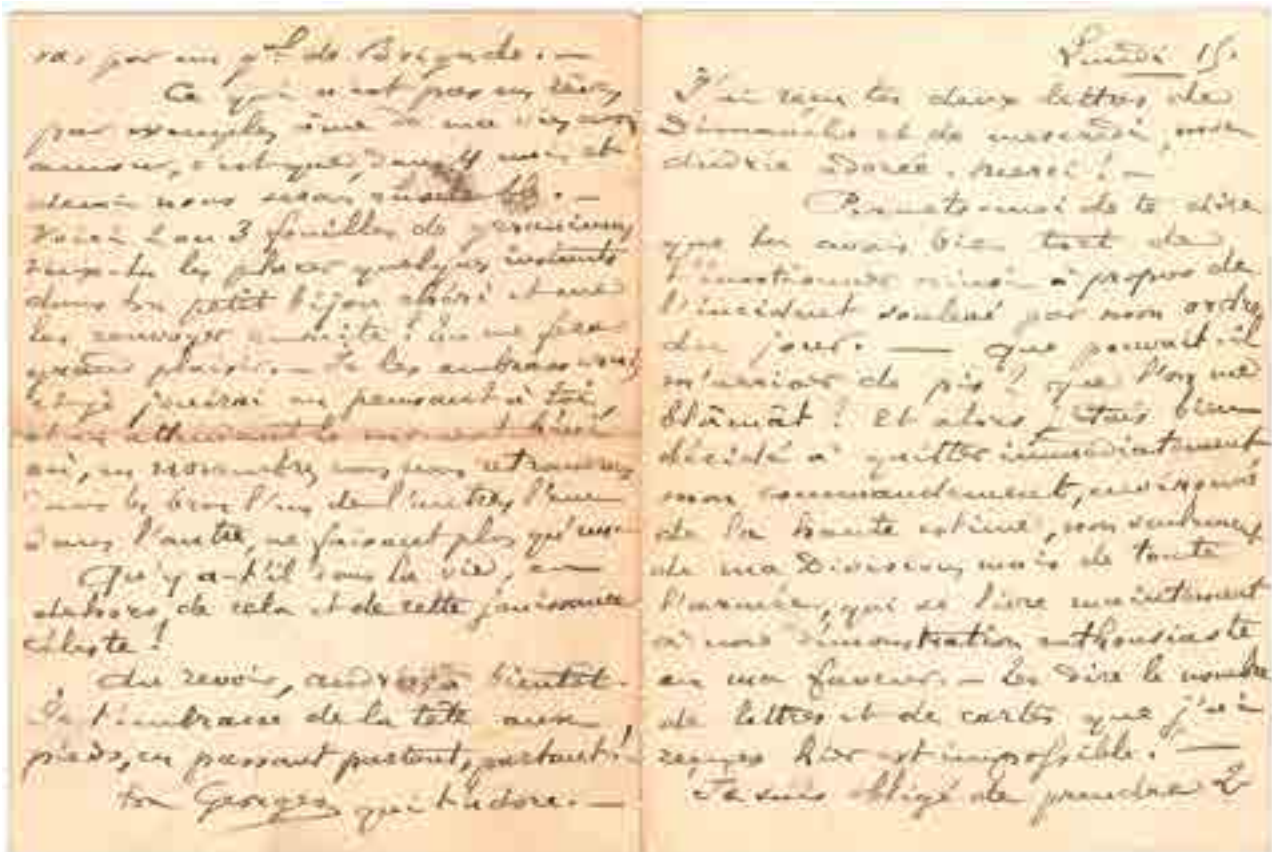 par un de Brigade. —
Ce qui n'est pas un rêve,
par exemple, âme de ma vie, mon
amour, c'est que, dans 4 mois et
demi nous serons
Voici 2 ou 3 feuilles de géranium,
veux-tu les placer quelques instants
dans ton petit bijou chéri et me
les renvoyer ensuite ? Tu me feras
grand plaisir. — Je les embrasserai,
et je jouirai en pensant à toi
et en attendant le moment béni
où, en novembre, nous nous retrouverons
dans les bras l'un de l'autre, l'une
dans l'autre, ne faisant plus qu'un
Qu'y a-t'il dans la vie, en
dehors de cela et de cette jouissance
céleste !
Au revoir, à bientôt.
Je t'embrasse de la tête aux
pieds, en passant partout, partout !
ton Georges qui t'adore. —
Lundi 15.
J'ai reçu tes deux lettres de
Dimanche et de mercredi, mon
adorée. merci ! —
Permets-moi de te dire
que tu avais bien tort de
ainsi à propos de
l'incident soulevé par mon ordre
du jour. — Que pouvait-il
m'arriver de pis ? que l'on me
blâmât ! Et alors j'étais bien
décidé à quitter immédiatement
mon commandement,
de la haute estime, non seulement
de ma Division, mais de toute
l'armée, qui se livre maintenant
à une démonstration enthousiaste
en ma faveur. — Te dire le nombre
de lettres et de cartes que j'ai
reçues hier est impossible. —
Je suis obligé de prendre 2